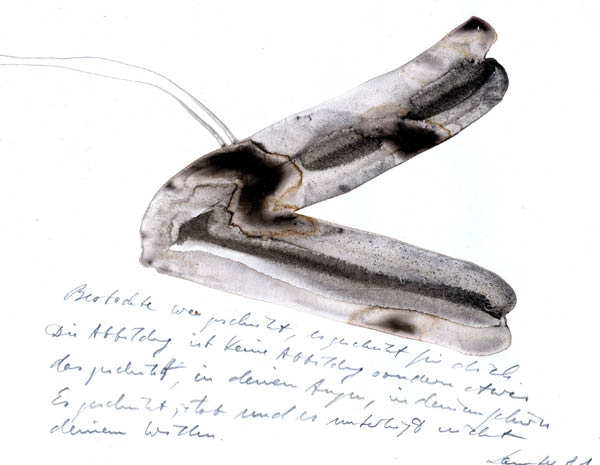 Beobachte was geschieht, es geschieht für dich.
Die Abbildung ist keine Abbildung sondern etwas
das geschieht, in deinen Augen, in deinem Gehirn
Es geschieht jetzt und es unterliegt nicht
deinem Willen.